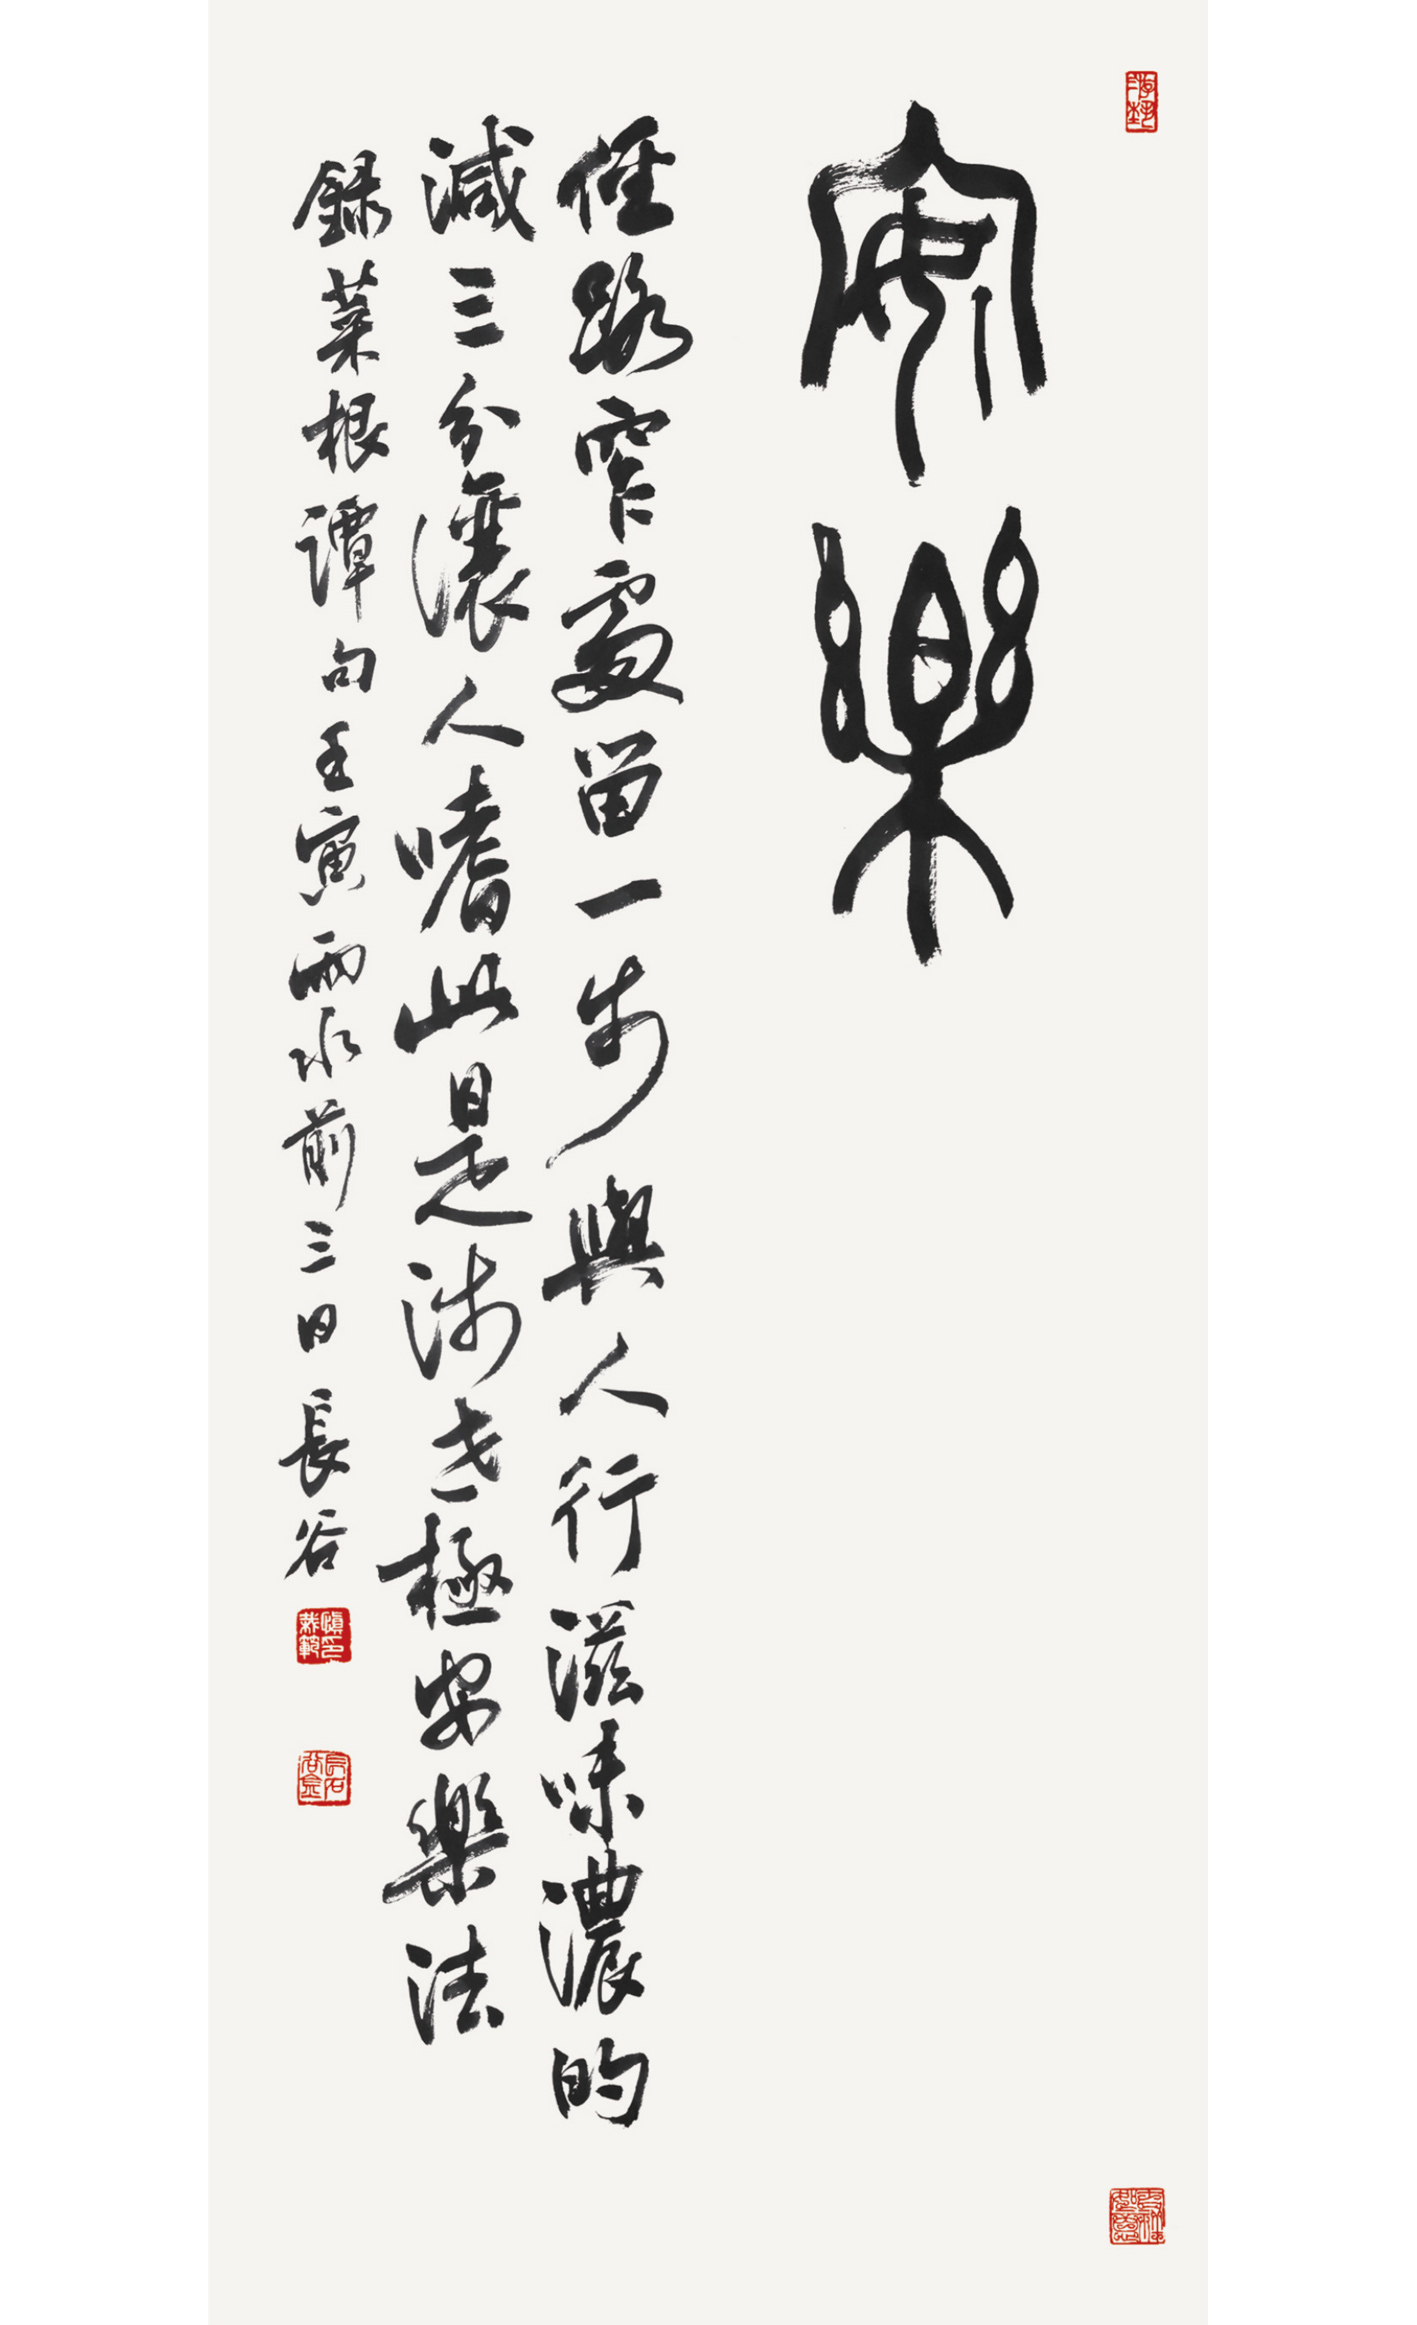 安樂
徑路窄處留一步與人行滋味濃的
減三分讓人嗜此是涉世極安樂法
錄菜根譚句壬寅雨水前三日長谷